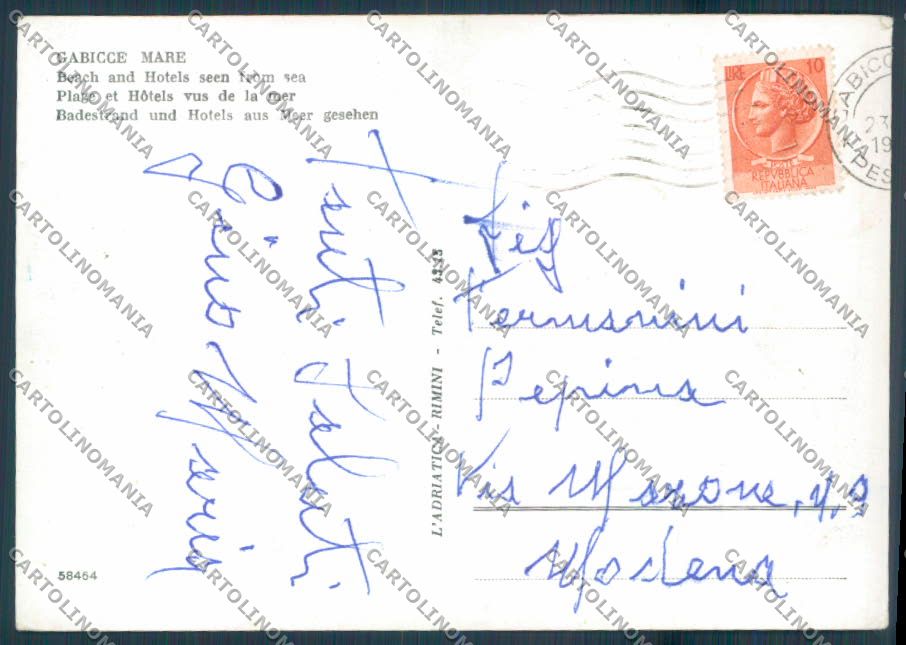 GABICCE MARE
Beach and Hotels seen from sea
Plage et Hôtels vus de la mer
Badestrand und Hotels aus Meer gesehen
LIRE 10
POSTE
REPVBBLICA
ITALIANA
GABICC
23
19
PES
Tanti Saluti
Gino
L'ADRIATICA - RIMINI - Telef.
Sig
Pepina
Via
Modena
58464
CARTOLINOMANIA